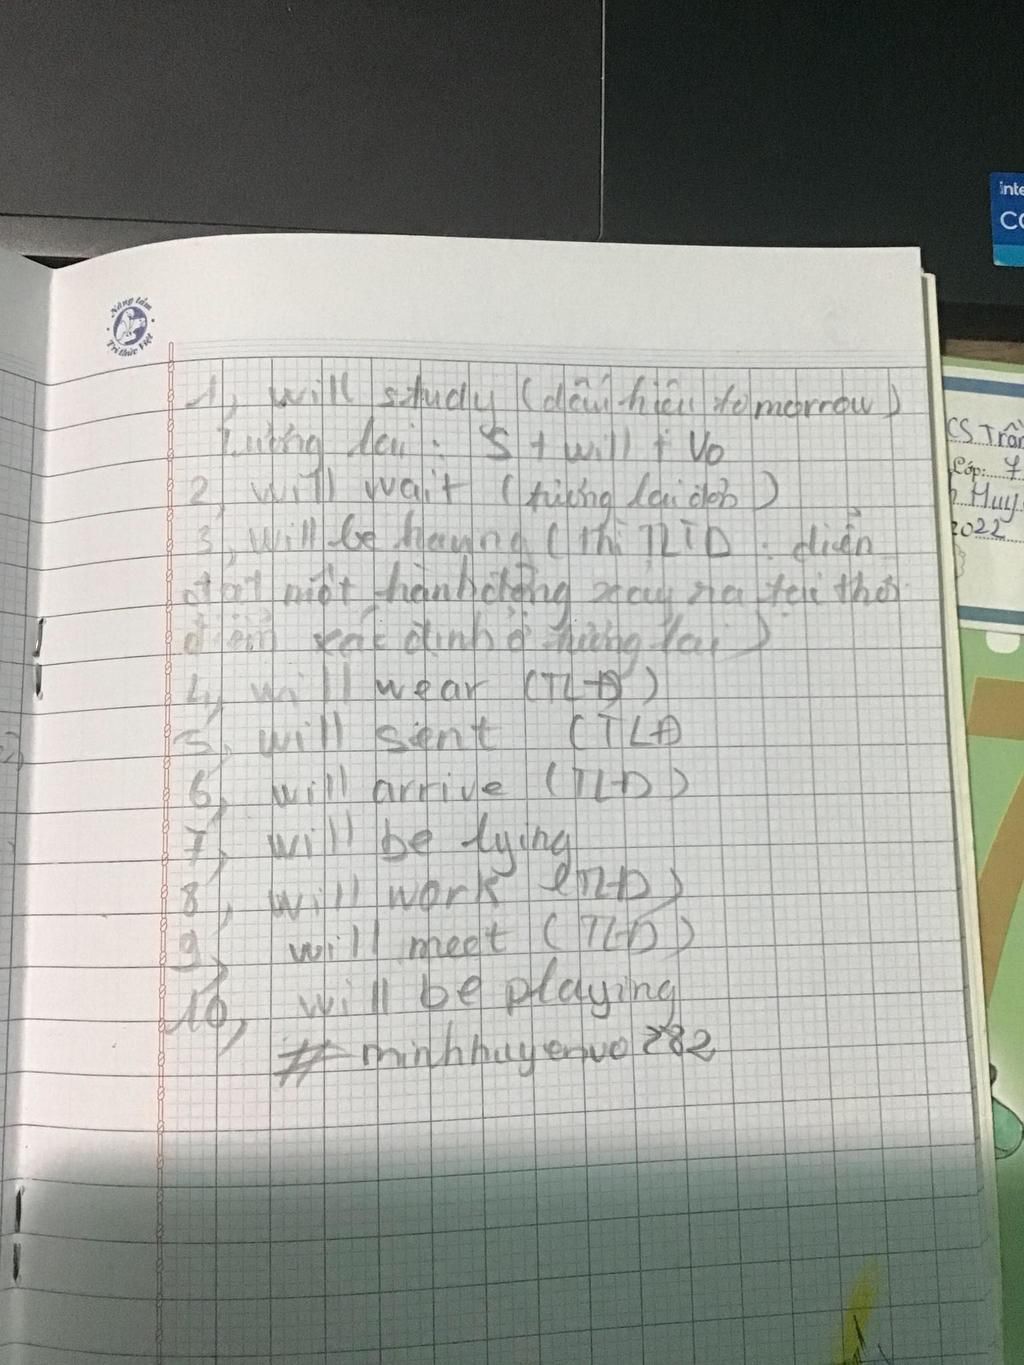 Nâng tầm
Tri thức Việt
1, will study (dấu hiệu tomorrow)
tương lai : S + will + Vo
2, will wait (tương lai đơn)
3, will be having (thì TLTD : diễn
đạt một hành động xảy ra tại thời
điểm xác định ở tương lai)
4, will wear (TLĐ)
5, will sent (TLĐ
6, will arrive (TLĐ)
7, will be lying
8, will work (TLĐ)
9, will meet (TLĐ)
10, will be playing
# minhhuyenvo282
inte
CO
CS Trần
Lớp: 7
Huy
2022